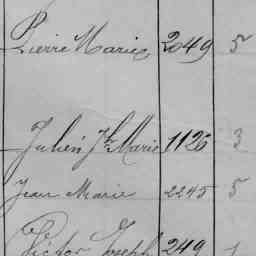 Pierre Marie 2049 5
Julien Jh Marie 1126 3
Jean Marie 2245 5
Victor Joseph 249 1